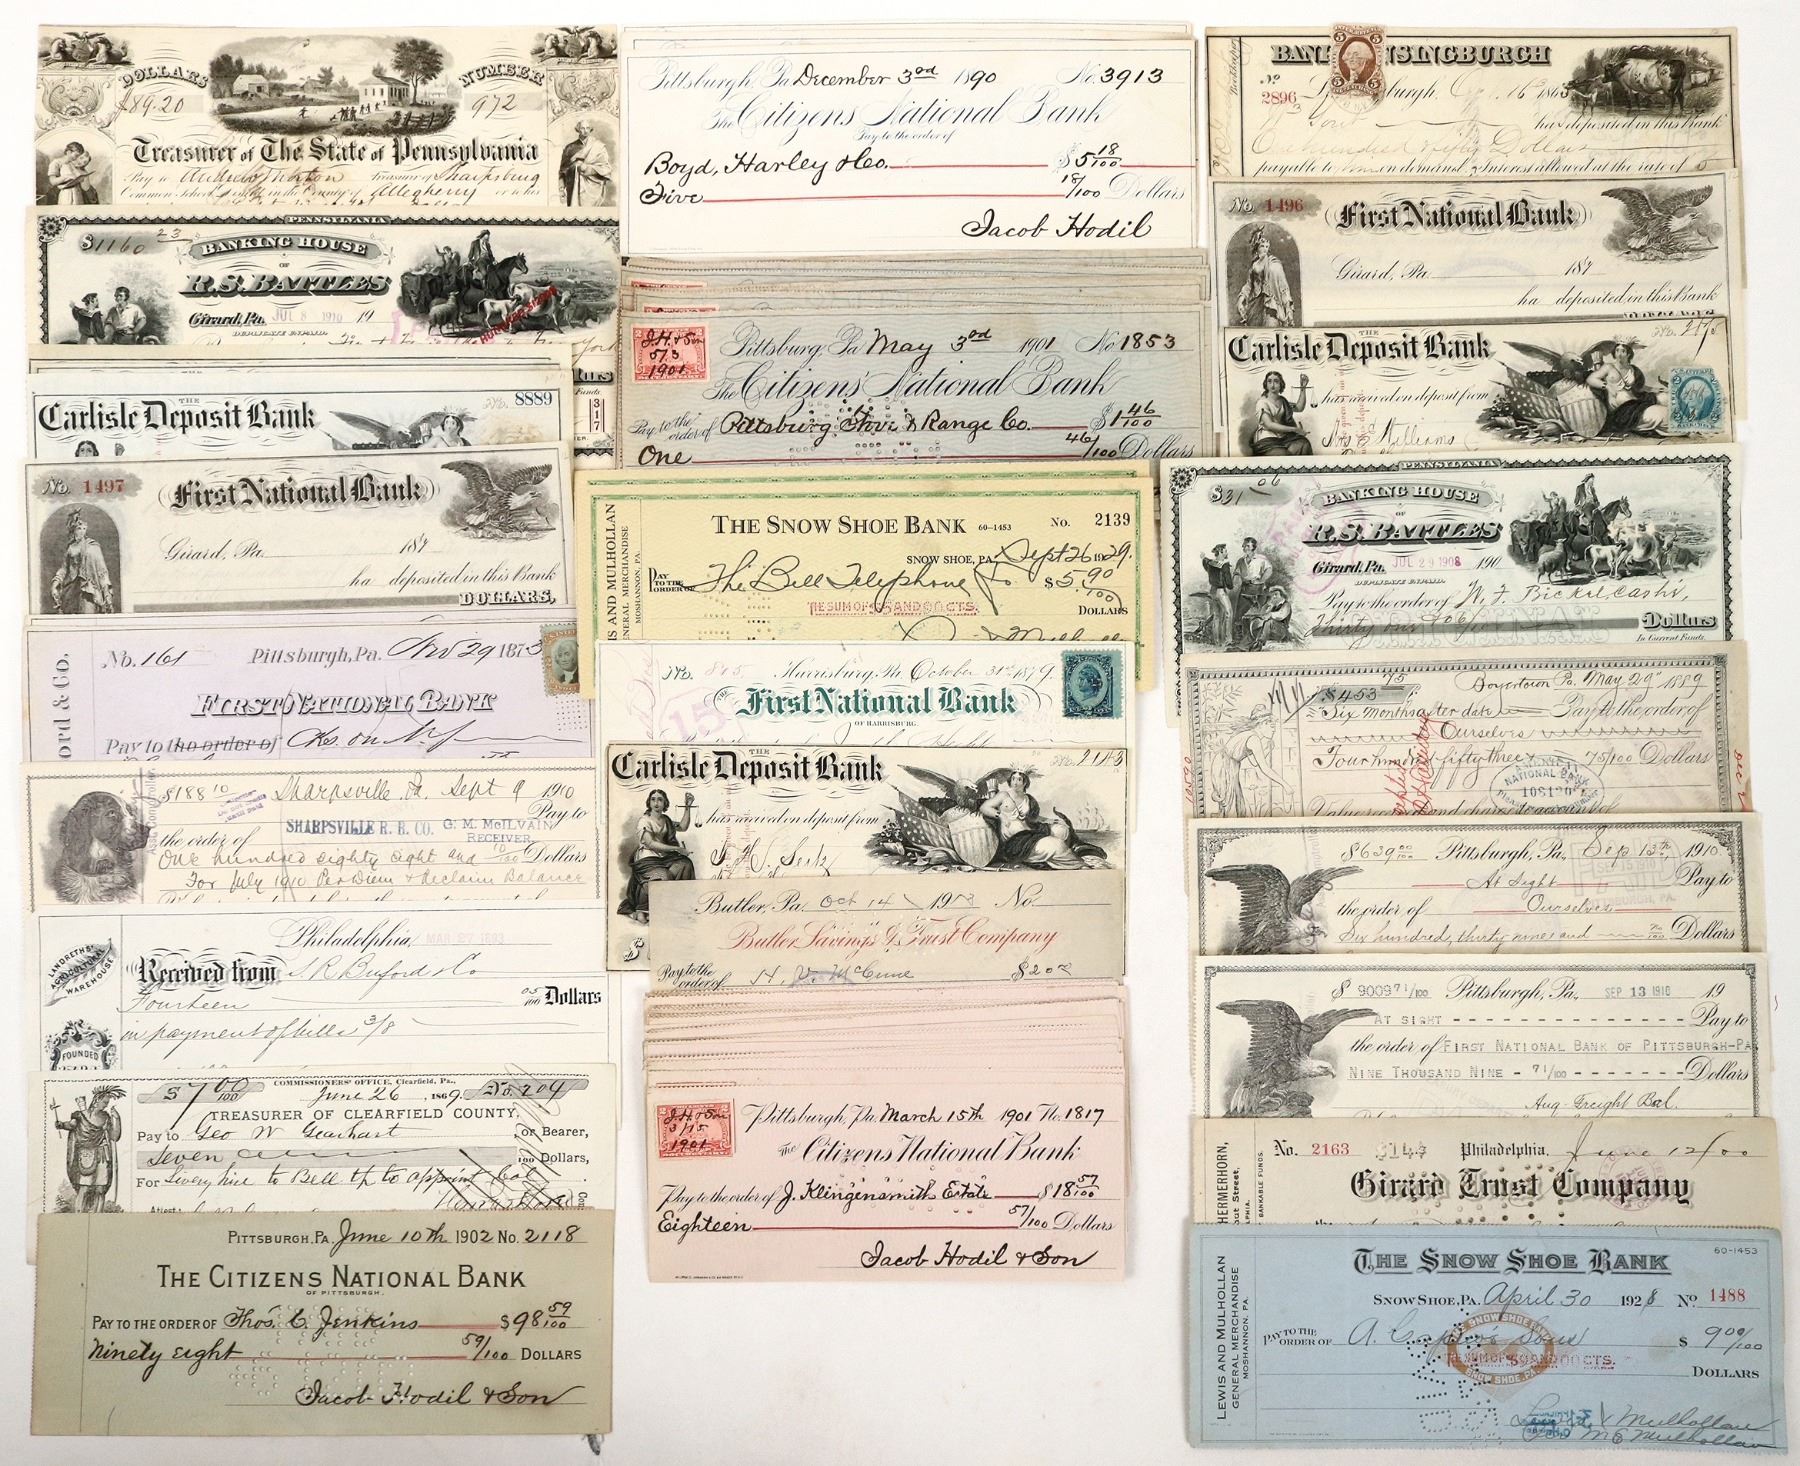 DOLLARS NUMBER
$89.20 972
Treasurer of The State of Pennsylvania
Pay to Andrew Morton treasurer of Sharpsburg
Common School District in the County of Allegheny or
PENNSYLVANIA
$1160 23
BANKING HOUSE
OF
R.S. BATTLES
Girard, Pa. JUL 8 1910 19
DUPLICATE UNPAID.
THE
Carlisle Deposit Bank No. 8889
317
No. 1497
First National Bank
Girard, Pa. 187
ha deposited in this Bank
DOLLARS,
ord & Co.
No. 161 Pittsburgh, Pa. Nov 29 1873
FIRST NATIONAL BANK
Pay to the order of
$188 10 Sharpsville, Pa. Sept 9 1910
Pay to
the order of SHARPSVILLE R. R. CO. G. M. McILVAIN
RECEIVER
One hundred eighty eight and 10/100 Dollars
For July 1910 Per Diem & Reclaim Balance
LANDRETHS' AGRICULTURAL WAREHOUSE
Philadelphia, MAR 27 1893
Received from S. R. Buford & Co
Fourteen 05/100 Dollars
in payment of bills 3/8
FOUNDED
COMMISSIONERS' OFFICE, Clearfield, Pa.,
$7 00/100 June 26, 1869. No. 204
TREASURER OF CLEARFIELD COUNTY,
Pay to Geo W Gearhart, or Bearer,
Seven 100 Dollars,
For
Attest:
PITTSBURGH, PA. June 10th 1902 No. 2118
THE CITIZENS NATIONAL BANK
OF PITTSBURGH.
PAY TO THE ORDER OF Thos. C. Jenkins $98 59/100
Ninety Eight 59/100 DOLLARS
Jacob Hodil & Son
Pittsburgh, Pa. December 3rd 1890 No. 3913
The Citizens National Bank
Pay to the order of
Boyd, Harley & Co. $5 18/100
Five 18/100 Dollars
Jacob Hodil
J.H. & Son
5/3
1901
Pittsburg, Pa. May 3rd 1901 No. 1853
The Citizens' National Bank
Pay to the order of Pittsburg Stove & Range Co. $1 46/100
One 46/100 Dollars
IS AND MULHOLLAN
NERAL MERCHANDISE
MOSHANNON, PA.
THE SNOW SHOE BANK 60-1453 No. 2139
SNOW SHOE, PA. Sept 26 1929
PAY TO THE ORDER OF The Bell Telephone Co $5.90/100
DOLLARS
No. 805 Harrisburg, Pa October 31st 1879.
First National Bank
OF HARRISBURG.
THE
Carlisle Deposit Bank No. 2143
has received on deposit from
Butler, Pa. Oct 14 1903 No.
Butler Savings & Trust Company
Pay to the order of H. V. McCune $20.00
J.H. & Son
3/15
1901
Pittsburgh, Pa. March 15th 1901 No. 1817
The Citizens National Bank
Pay to the order of J. Klingensmith's Estate $18 57/100
Eighteen 57/100 Dollars
Jacob Hodil & Son
BANK NSINGBURGH
No 2896
burgh, 16 1863
has deposited in this Bank
One hundred & fifty Dollars
payable to on demand & Interest allowed at the rate of 5
No. 1496 First National Bank
Girard, Pa. 187
ha deposited in this Bank
THE
Carlisle Deposit Bank No. 2175
has received on deposit from
Mrs E Williams
PENNSYLVANIA
$31 06
BANKING HOUSE
OF
R.S. BATTLES
Girard, Pa. JUL 29 1908 190
DUPLICATE UNPAID.
Pay to the order of W. F. Bickel Cash'r,
Thirty one & 06/100 Dollars
In Current Funds.
$453 75 Boyertown Pa. May 29" 1889
Six months after date Pay to the order of
Ourselves
Four hundred fifty three 75/100 Dollars
$639 00/100 Pittsburgh, Pa., Sep 13th, 1910.
At Sight Pay to
the order of Ourselves
Six hundred, thirty nine and no/100 Dollars
$ 9009 71/100 Pittsburgh, Pa., SEP 13 1910 19
AT SIGHT Pay to
the order of FIRST NATIONAL BANK OF PITTSBURGH-PA
NINE THOUSAND NINE - 71/100 Dollars
Aug. Freight Bal.
HERMERHORN,
No. 2163 Philadelphia, June 12/00
Girard Trust Company
LEWIS AND MULHOLLAN
GENERAL MERCHANDISE
MOSHANNON, PA.
THE SNOW SHOE BANK 60-1453
SNOW SHOE, PA. April 30 1928 No 1488
PAY TO THE ORDER OF $ 9 00/100
DOLLARS